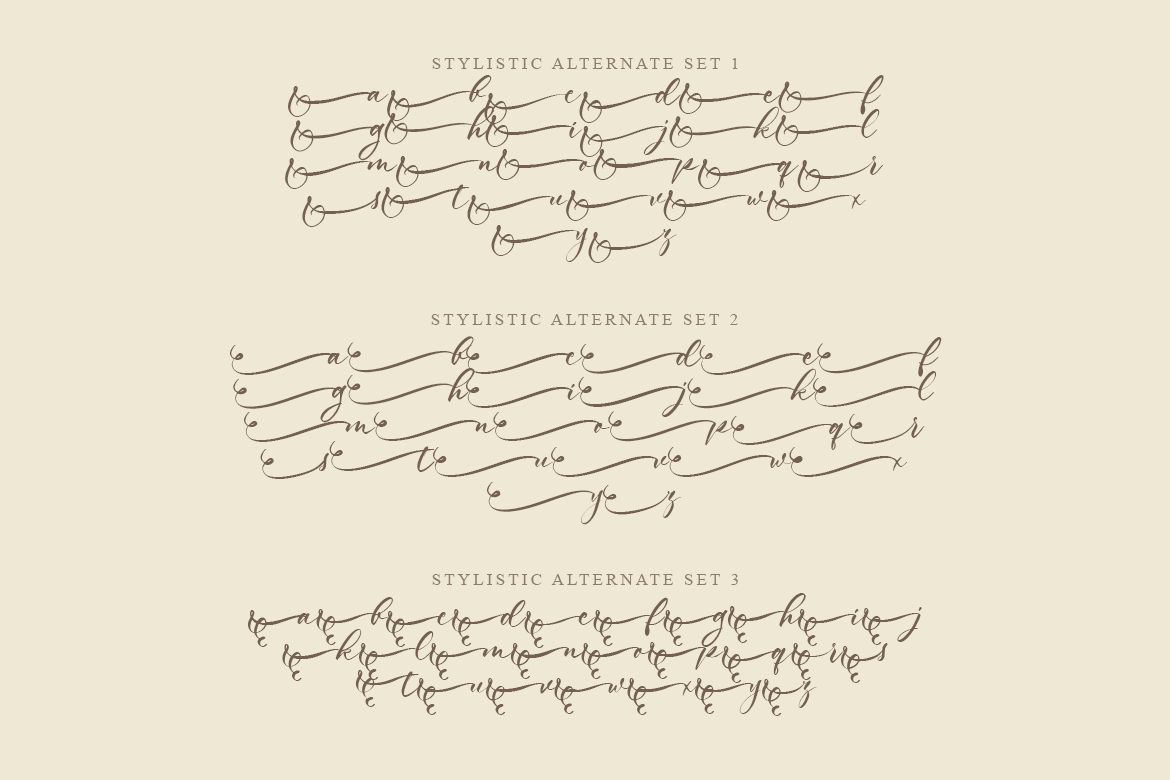 STYLISTIC ALTERNATE SET 1
a b c d e f
g h i j k l
m n o p q r
s t u v w x
y z
STYLISTIC ALTERNATE SET 2
a b c d e f
g h i j k l
m n o p q r
s t u v w x
y z
STYLISTIC ALTERNATE SET 3
a b c d e f g h i j
k l m n o p q r s
t u v w x y z